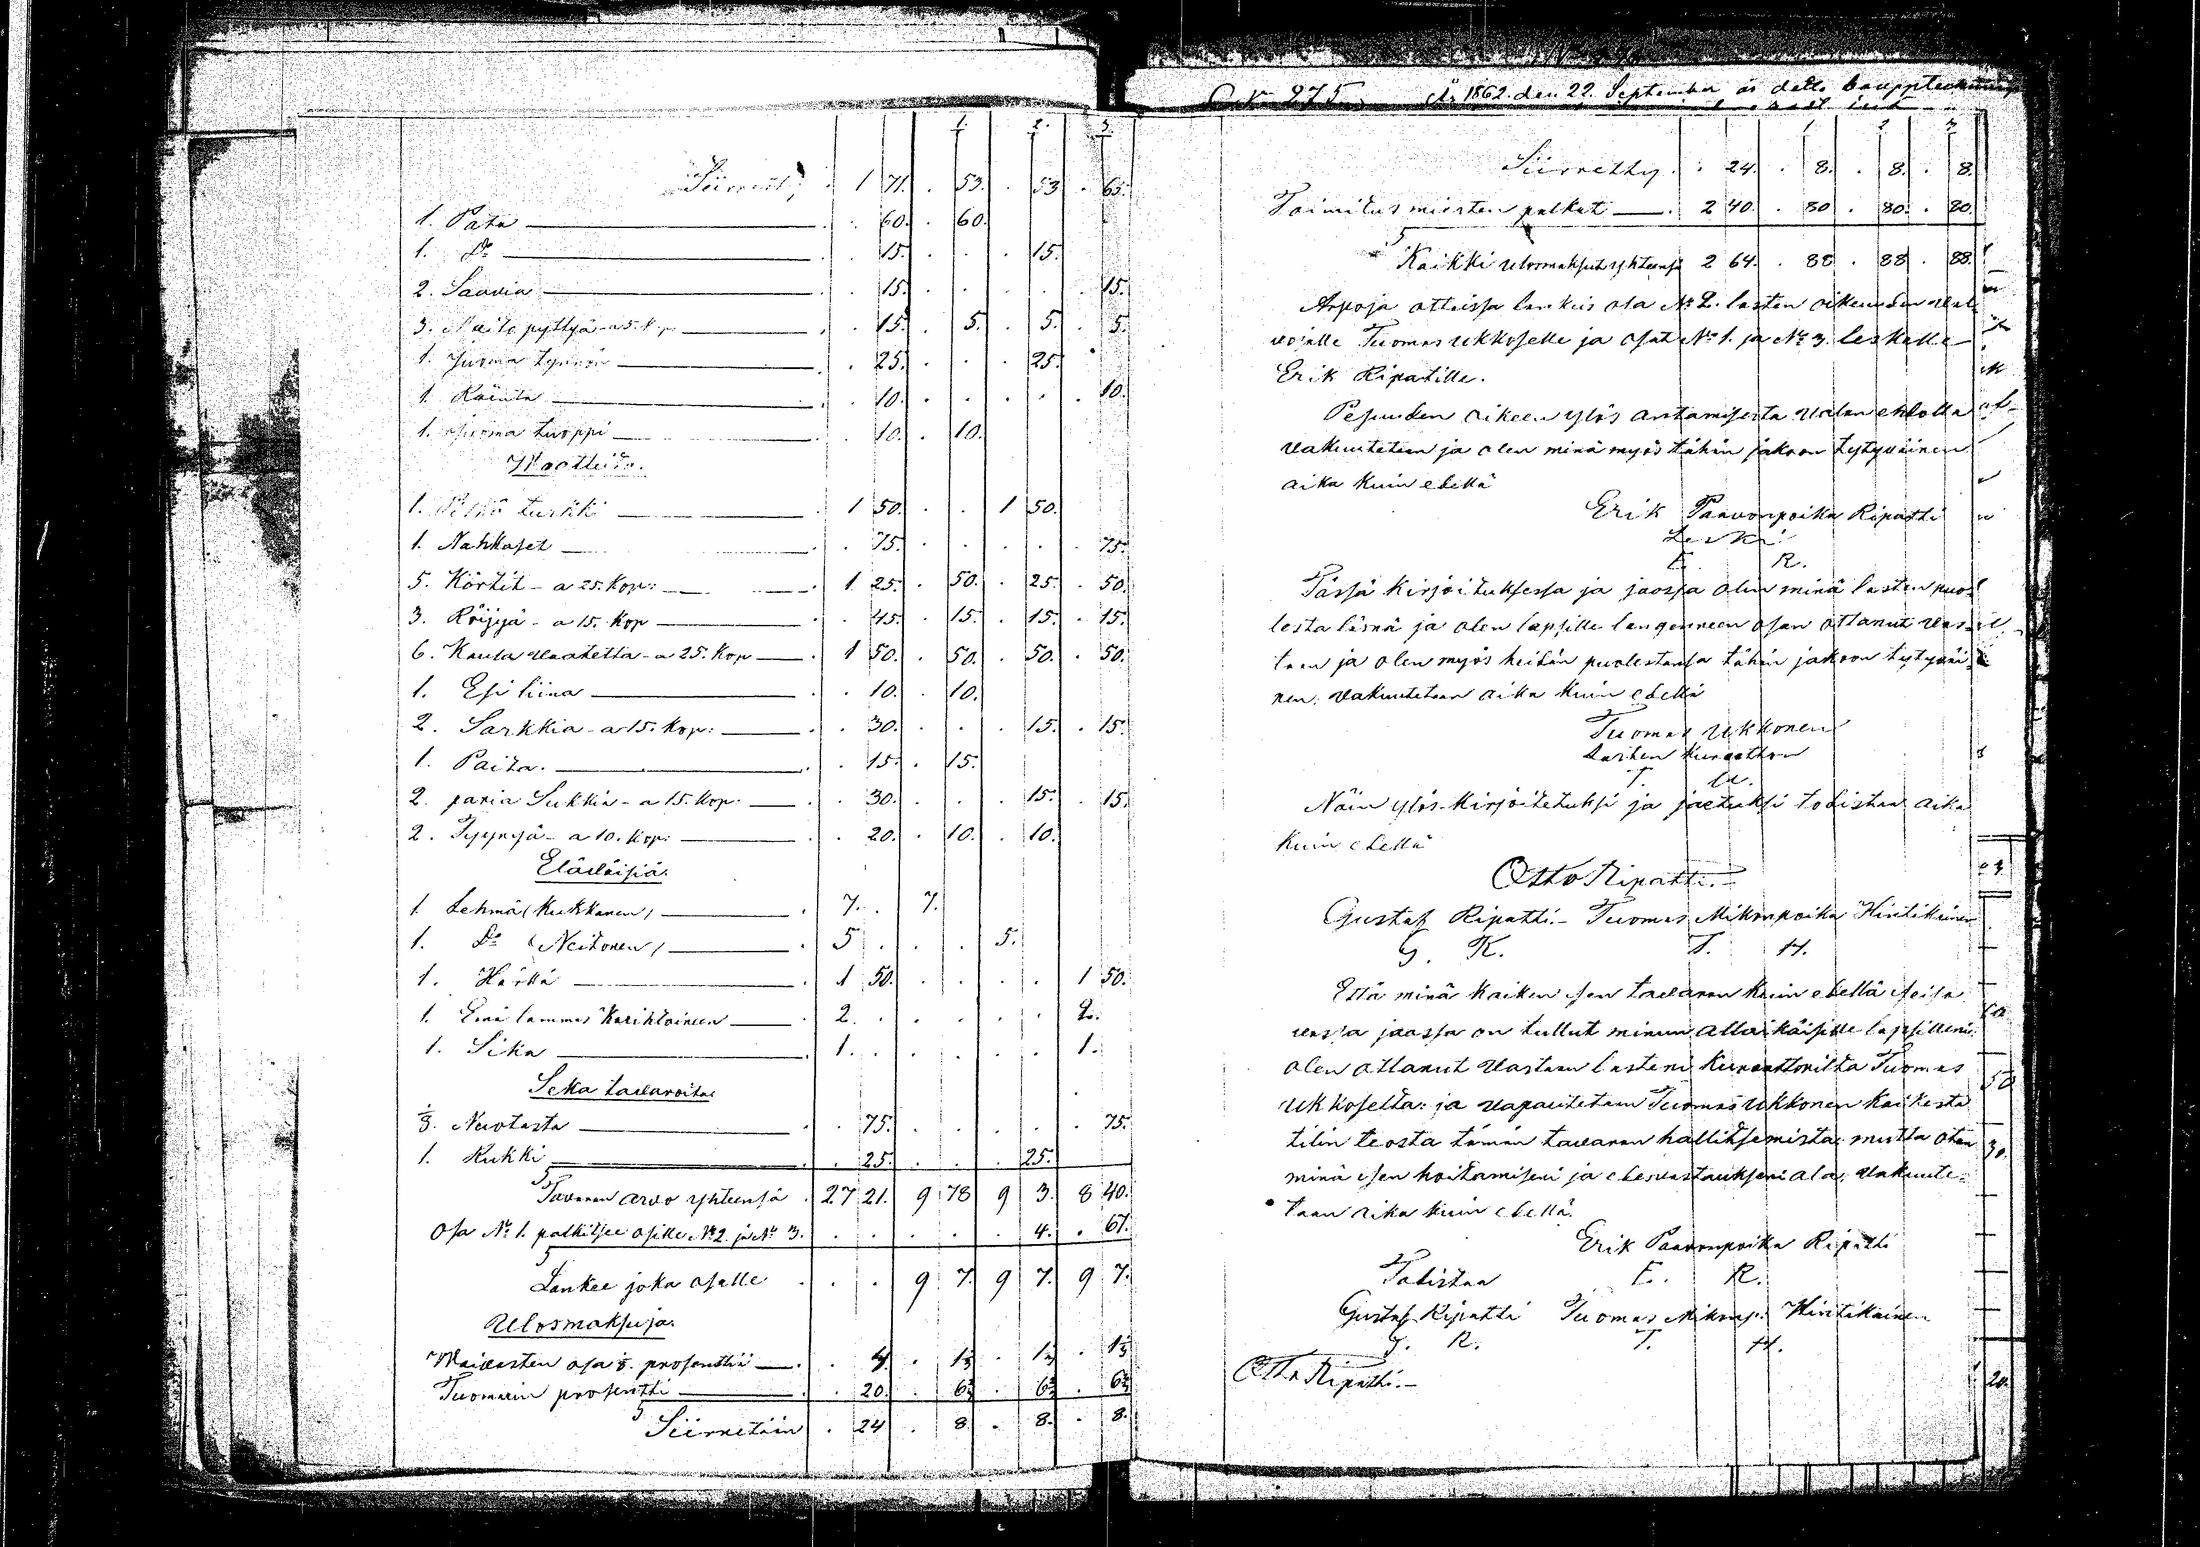 1. 2. 3.
Siirretty . 1 71. . 53. . 53 . 65.
1. Pata . . 60. . 60.
1. Do . . 15. . . . 15.
2. Saavia . . 15. . . . . . 15.
3. Maito pyttyä - a 5. kop . . 15. . 5. . 5. . 5.
1. Juoma tynnöri . . 25. . . . 25.
1. Räintä . . 10. . . . . . 10.
1. Juoma tuoppi . . 10. . 10.
Waatteita.
1. turkki . 1 50. . . 1 50.
1. Nahkaset . . 75. . . . . . 75.
5. Körtit - a 25. Kop: . 1 25. . 50. . 25. . 50.
3. Röijyä - a 15. Kop . . 45. . 15. . 15. . 15.
6. Kaula vaatetta - a 25. Kop . 1 50. . 50. . 50. . 50.
1. Esi liina . . 10. . 10.
2. Sarkkia - a 15. Kop: . . 30. . . . 15. . 15.
1. Paita. . . 15. . 15.
2. paria Sukkia - a 15. Kop: . . 30. . . . 15. . 15.
2. Tyynyä - a 10. Kop: . . 20. . 10. . 10.
Eläväisiä.
1. Lehmä (Kukkanen) . 7. . 7.
1. Do (Neitonen) . 5 . . . 5.
1. Härkä . 1 50. . . . . 1 50.
1. Emä lammas Karihtoineen . 2. . . . . . 2.
1. Sika . 1. . . . . . 1.
Seka tavaroita
Nuotasta . . 75. . . . . . 75.
1. Kukki . . 25. . . . 25.
Tavaran arvo yhteensä . 27 21. 9 78 9 3. 8 40.
Osa No 1. palkitsee osille No 2. ja No 3. . . . . . 4. . 67.
Lankee joka osalle . . . 9 7. 9 7. 9 7.
Ulosmaksuja.
Waivasten osa prosenttii . . 4. . 1⅓ . 1⅓ . 1⅓
Tuomarin prosentti . . 20. . 6⅔ . 6⅔ . 6⅔
Siirretään . 24 . 8. . 8. . 8.
No 275. År 1862. den 22. September är detta bouppteckning
1 2 3
Siirretty . . 24. . 8. . 8. . 8.
Toimitus miesten palkat . 2 40. . 80 . 80. . 80.
Kaikki ulosmaksut yhteensä 2 64. . 88 . 88 . 88.
Arpoja ottaissa lankeis osa No 2. lasten oikeuden val
vojalle Tuomas Ukkoselle ja osat No 1. ja No 3. leskelle
Erik Ripatille.
Pesuuden oikeen ylös antamisesta valan ehdolla
vakuutetaan ja olen minä myös tähän jakoon tytyväinen
aika kuin edellä
Erik Paavonpoika Ripatti
Leski
E. R.
Tässä kirjoituksessa ja jaossa olen minä lasten puo
lesta läsnä ja olen lapsille langenneen osan ottanut vas
taan ja olen myös heidän puolestansa tähän jakoon tytyväi
nen. vakuutetaan aika kuin edellä
Tuomas Ukkonen
Lasten Kuraattori
T. U.
Näin ylös-kirjoitetuksi ja jaetuksi todistaa aika
kuin edellä
Otto Ripatti.-
Gustaf Ripatti.- Tuomas Mikonpoika Hintikainen
G. R. T. H.
Että minä kaiken sen tavaran kuin edellä seiso
vassa jaossa on tullut minun allaikäisille lapsilleni
olen ottanut vastaan lasteni Kuraattorilta Tuomas
Ukkoselta: ja vapautetaan Tuomas Ukkonen kaikesta
tilin teosta tämän tavaran hallitsemista: mutta otan
minä sen hoitamiseni ja edesvastaukseni ala. vakuute-
taan aika kuin edellä.
Erik Paavonpoika Ripatti
Todistaa E. R.
Gustaf Ripatti Tuomas Mikonp: Hintikainen
G. R. T. H.
Otto Ripatti.-